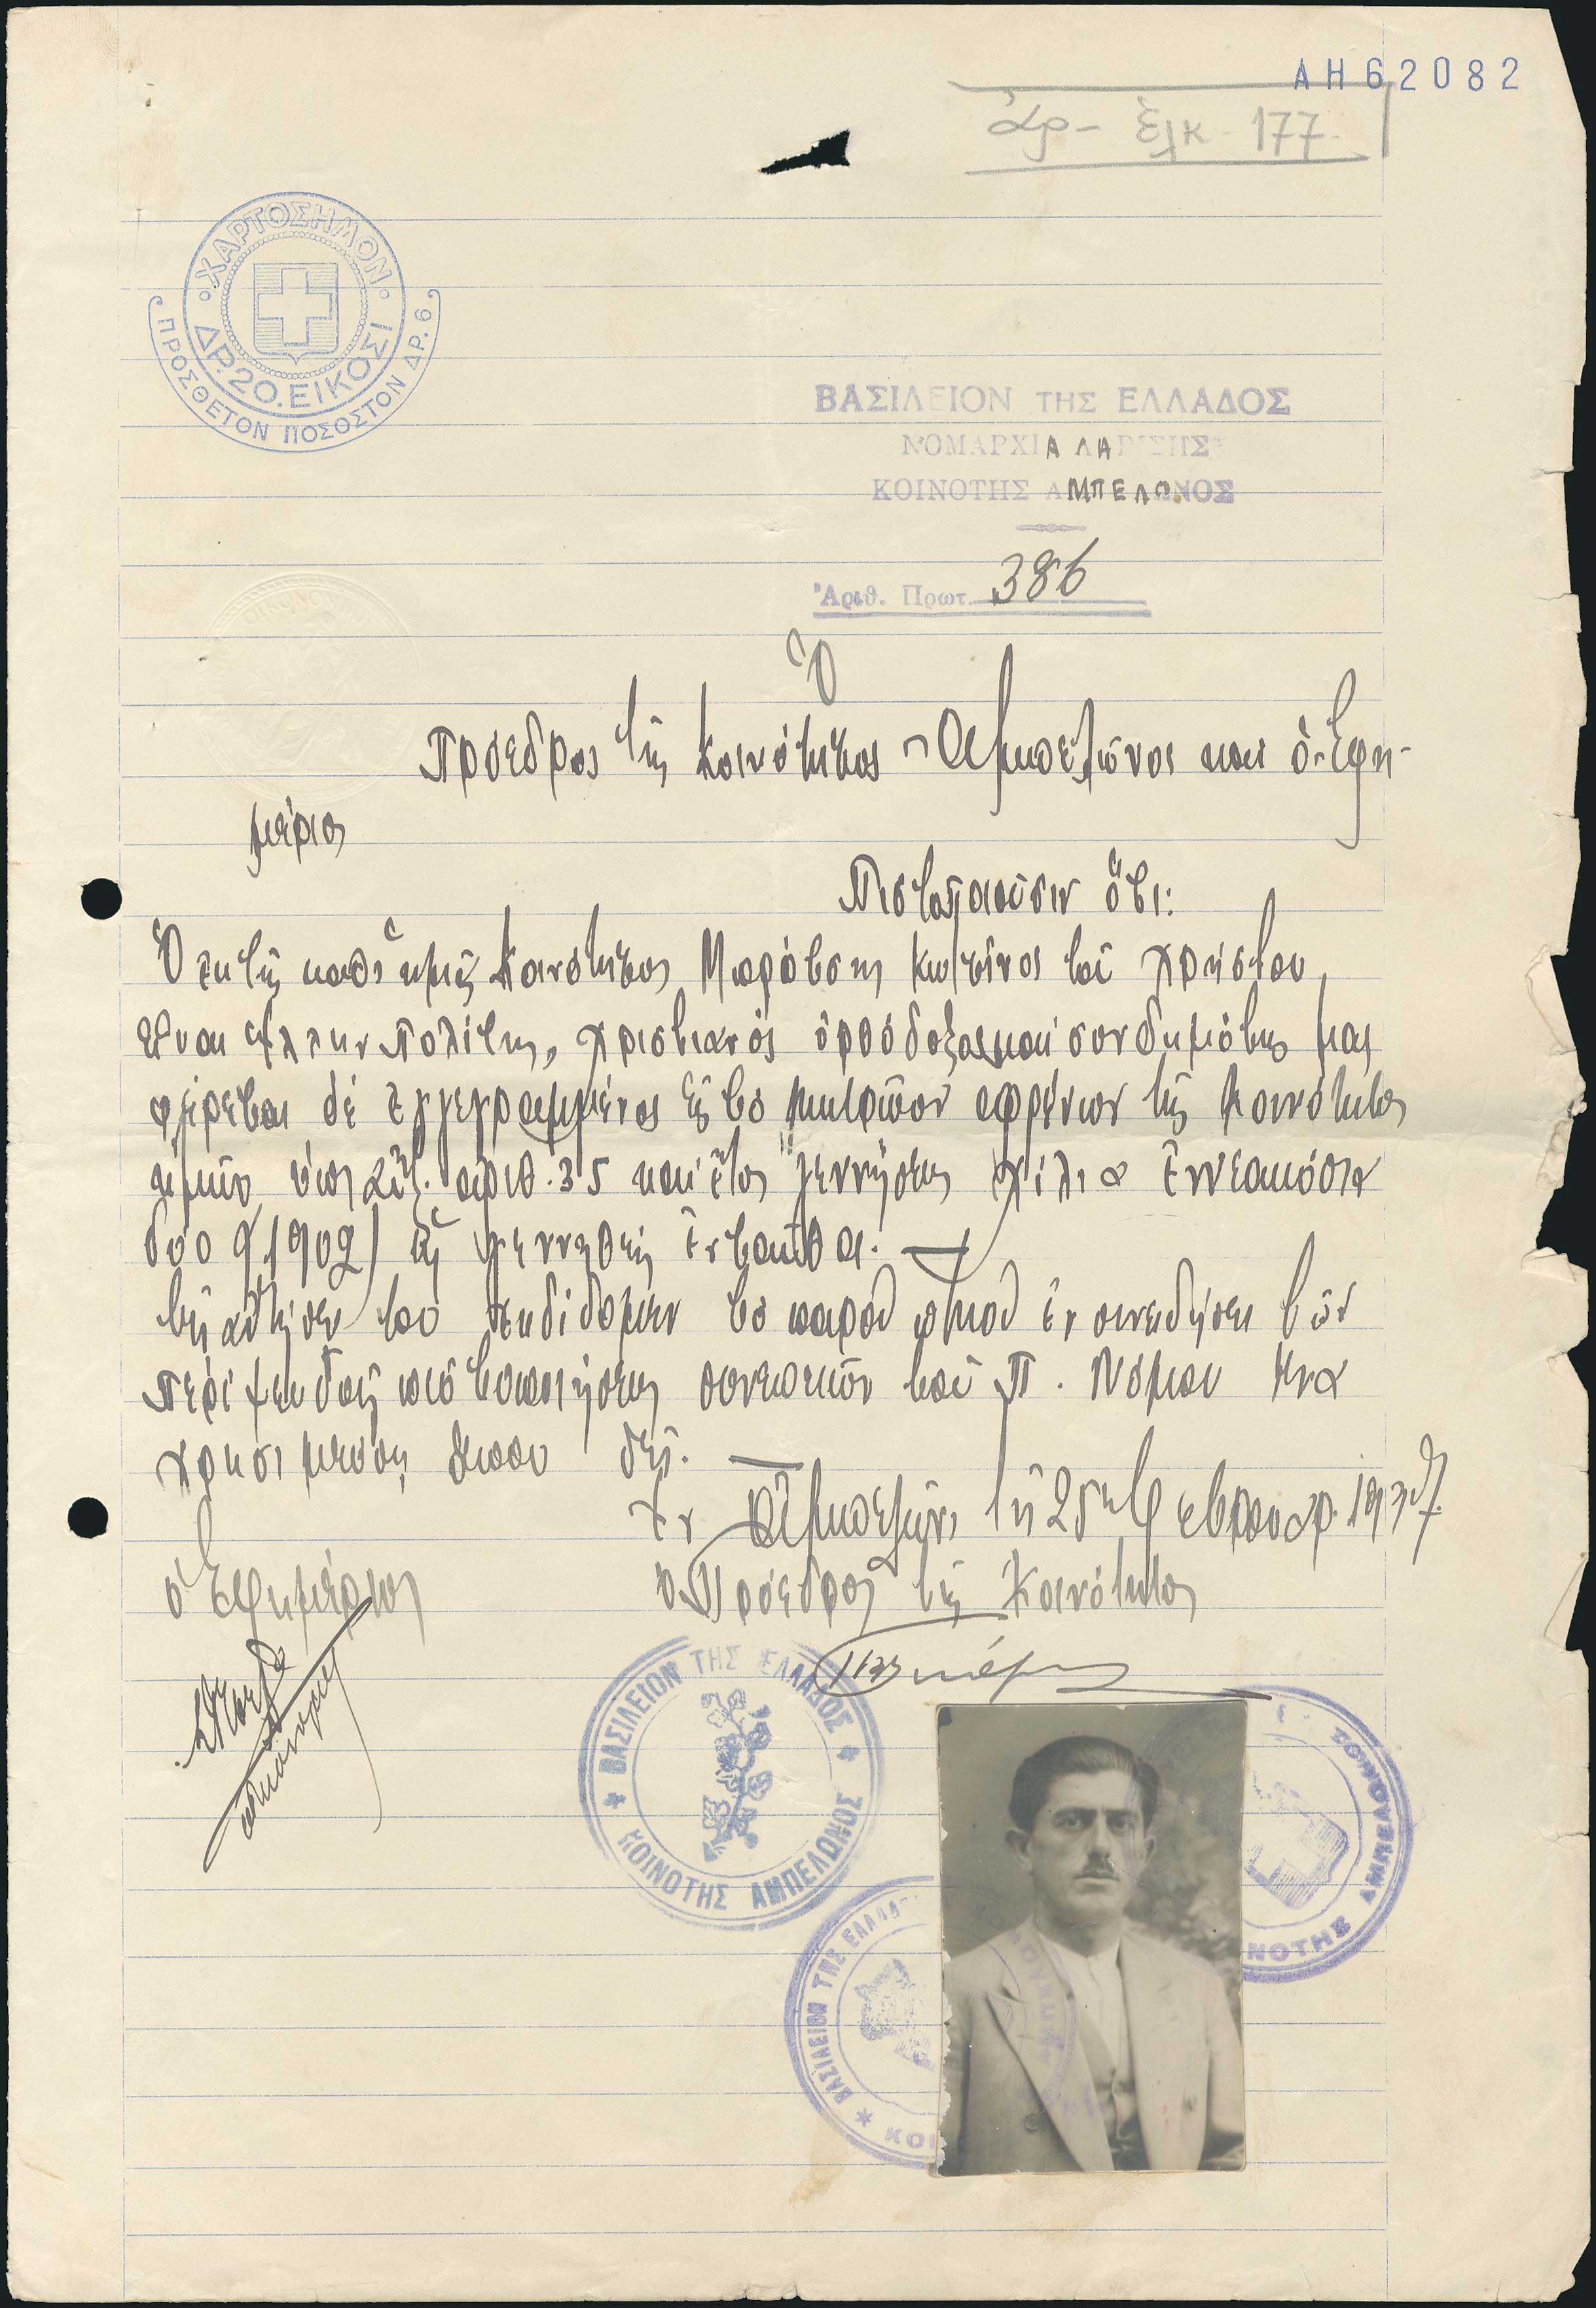 ΑΗ62082
ἀρ- ἐγκ 177
ΧΑΡΤΟΣΗΜΟΝ
ΔΡ.20.ΕΙΚΟΣΙ
ΠΡΟΣΘΕΤΟΝ ΠΟΣΟΣΤΟΝ ΔΡ.6
ΒΑΣΙΛΕΙΟΝ ΤΗΣ ΕΛΛΑΔΟΣ
ΝΟΜΑΡΧΙΑ ΛΑΡΙΣΗΣ
ΚΟΙΝΟΤΗΣ ΑΜΠΕΛΩΝΟΣ
Ἀριθ. Πρωτ. 386
Ὁ
Πρόεδρος τῆς Κοινότητος Ἀμπελῶνος και ὁ Ἐφη-
μέριος
Πιστοποιοῦσιν ὅτι:
Ὁ ἐκ τῆς καθ' ἡμᾶς Κοινότητος Κωτσῖνος τοῦ Χρήστου
εἶναι Ἕλλην Πολίτης, Χριστιανός ὀρθόδοξος και συνδημότης μας
φέρεται δέ ἐγγεγραμμένος εἰς το μητρῶον ἀρρένων τῆς Κοινότητος
ἡμῶν ὑπ' αὔξ. ἀριθ. 35 και ἔτος γεννήσεως χίλια ἐννεακόσια
δύο (1902) ὡς γεννηθείς ἐνταῦθα.
τῇ αἰτήσει του ἐκδίδομεν το παρόν ἐν συνειδήσει τῶν
περί ψευδοῦς πιστοποιήσεως συνεπειῶν τοῦ Π. Νόμου ἵνα
χρησιμεύσῃ ὅπου δεῖ.
Ἐν Ἀμπελῶνι τῇ 25ῃ Φεβρουαρ. 1937
ὁ Ἐφημέριος
ὁ Πρόεδρος τῆς Κοινότητος
ΒΑΣΙΛΕΙΟΝ ΤΗΣ ΕΛΛΑΔΟΣ
ΚΟΙΝΟΤΗΣ ΑΜΠΕΛΩΝΟΣ
ΝΟΤΗΣ ΑΜΠΕΛΩΝΟΣ
ΒΑΣΙΛΕΙΟΝ ΤΗΣ ΕΛΛΑΔ
ΚΟΙ